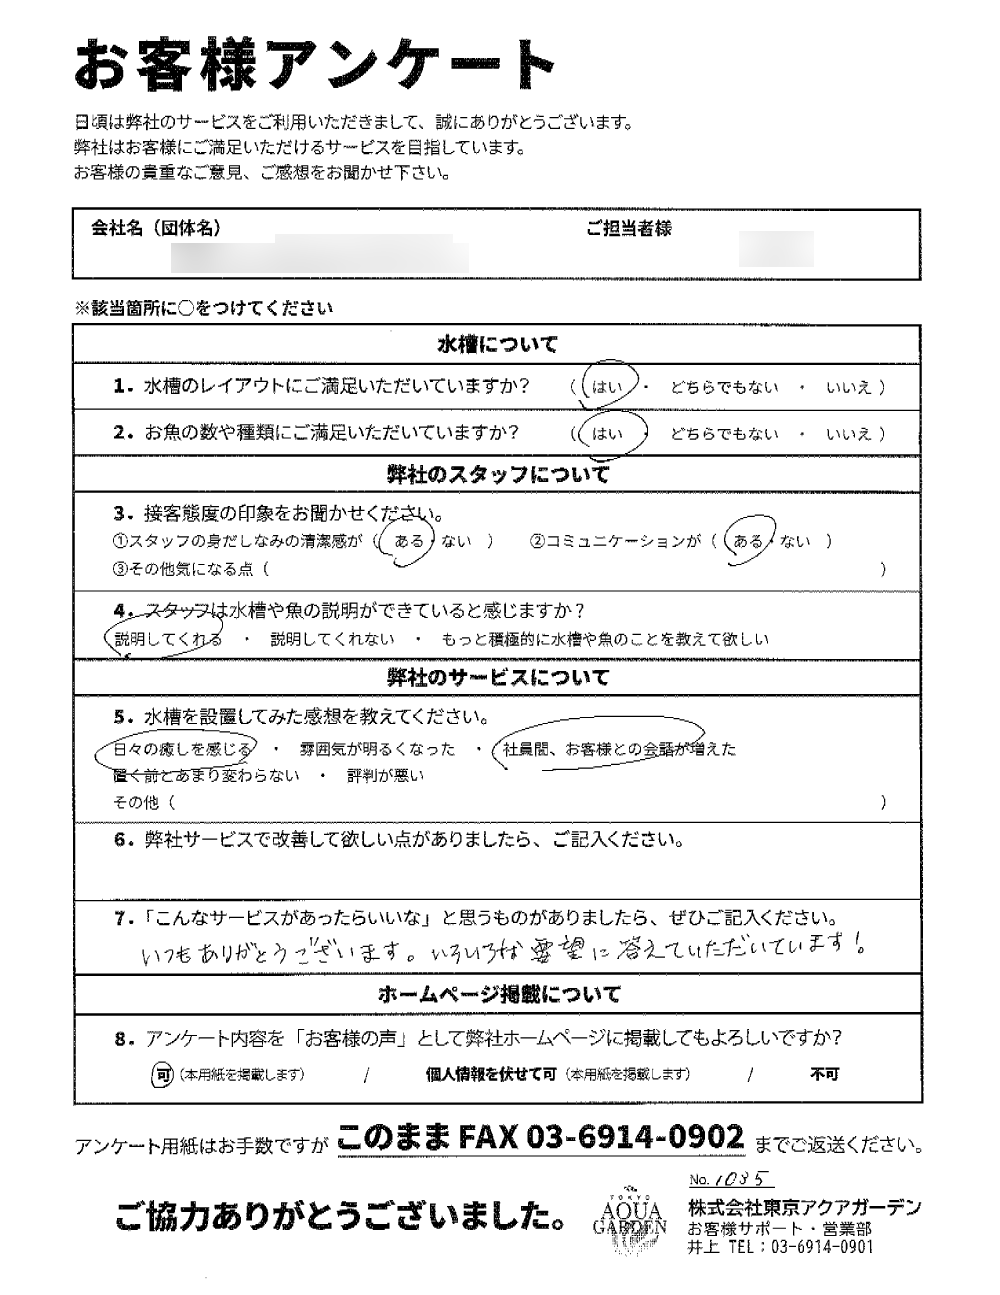 お客様アンケート
日頃は弊社のサービスをご利用いただきまして、誠にありがとうございます。
弊社はお客様にご満足いただけるサービスを目指しています。
お客様の貴重なご意見、ご感想をお聞かせ下さい。
会社名（団体名） ご担当者様
※該当箇所に○をつけてください
水槽について
1. 水槽のレイアウトにご満足いただいていますか？ （ はい ・ どちらでもない ・ いいえ ）
2. お魚の数や種類にご満足いただいていますか？ （ はい ・ どちらでもない ・ いいえ ）
弊社のスタッフについて
3. 接客態度の印象をお聞かせください。
①スタッフの身だしなみの清潔感が（ ある・ない ） ②コミュニケーションが（ ある・ない ）
③その他気になる点（ ）
4. スタッフは水槽や魚の説明ができていると感じますか？
説明してくれる ・ 説明してくれない ・ もっと積極的に水槽や魚のことを教えて欲しい
弊社のサービスについて
5. 水槽を設置してみた感想を教えてください。
日々の癒しを感じる ・ 雰囲気が明るくなった ・ 社員間、お客様との会話が増えた
置く前とあまり変わらない ・ 評判が悪い
その他（ ）
6. 弊社サービスで改善して欲しい点がありましたら、ご記入ください。
7. 「こんなサービスがあったらいいな」と思うものがありましたら、ぜひご記入ください。
いつもありがとうございます。いろいろな要望に答えていただいています！
ホームページ掲載について
8. アンケート内容を「お客様の声」として弊社ホームページに掲載してもよろしいですか？
可（本用紙を掲載します） / 個人情報を伏せて可（本用紙を掲載します） / 不可
アンケート用紙はお手数ですが このまま FAX 03-6914-0902 までご返送ください。
ご協力ありがとうございました。
TOKYO
AQUA
GARDEN
No. 1035
株式会社東京アクアガーデン
お客様サポート・営業部
井上 TEL：03-6914-0901